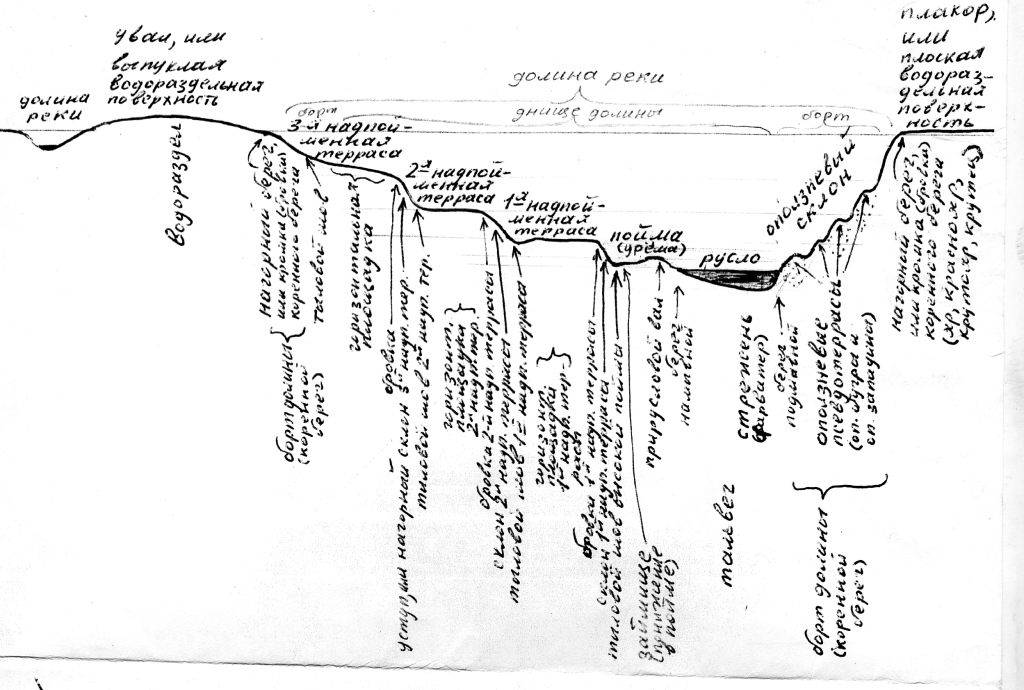 долина
реки
увал, или
выпуклая
водораздельная
поверхность
плакор,
или
плоская
водораз-
дельная
поверх-
ность
долина реки
борт
днище долины
борт
3-й надпой-
менная
терраса
2я надпой-
менная
терраса
1я надпой-
менная
терраса
пойма
(урёма)
русло
оползневый
склон
Водораздел
нагорный берег,
или кромка (бровка)
коренного берега
тыловой шов
борт долины
(коренной
берег)
горизонтальная
площадка
бровка
уступ, или нагорный склон 3й надп. тер.
тыловой шов 2й надп. тер.
горизонт.
площадка
2й надп. тер.
бровка 2-й надп. террасы
склон 2й надп. террасы
тыловой шов 1й надп. терраса
горизонт.
площадки
1й надп. тер-
расы
бровка 1й надп. террасы
склон 1й надп. терраса
тыловой шов высокой поймы
займище
(понижение
в пойме)
прирусловой вал
берег
намывной
стрежень
(фарватер)
тальвег
берег
подмывной
оползневые
псевдотеррасы
(оп. бугры и
оп. западины)
борт долины
(коренной
берег)
нагорный берег,
или кромка (бровка)
коренного берега
(яр, крайняя,
крутояр, крутец)